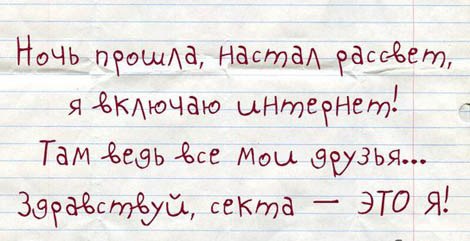 Ночь прошла, настал рассвет,
я включаю интернет!
Там ведь все мои друзья...
Здравствуй, секта — ЭТО Я!